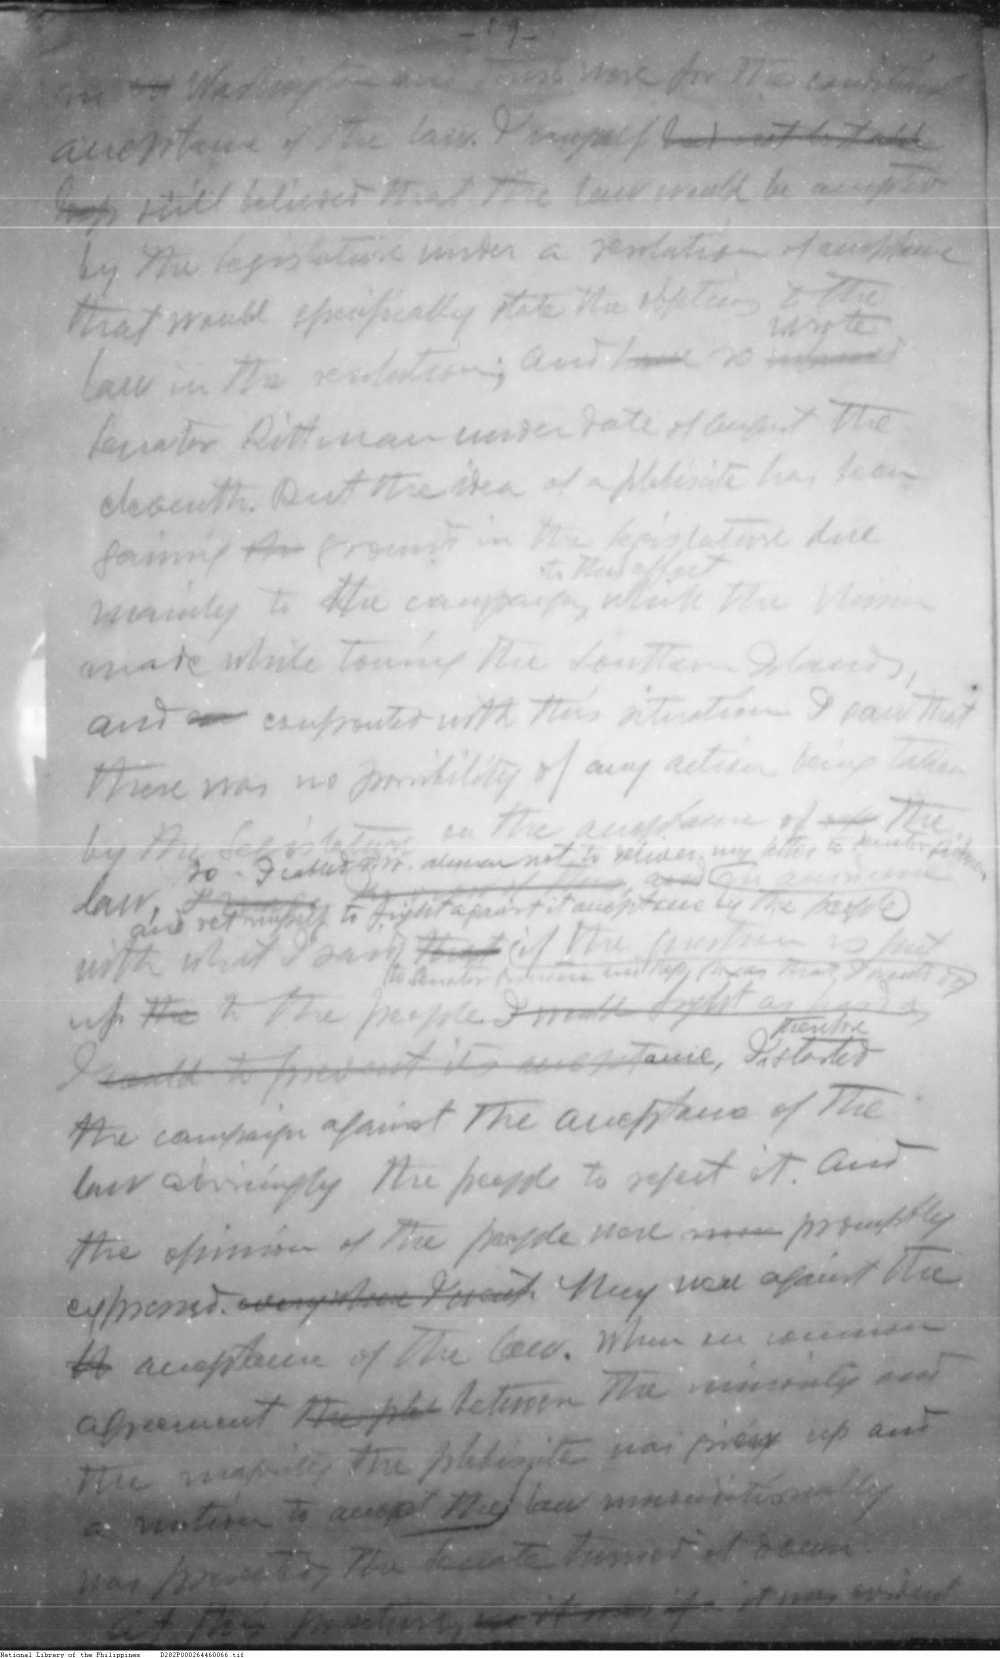 -19-
in Washington and was for the conditional
acceptance of the law. I myself had not
still believed that the law would be accepted
by the legislature under a resolution of acceptance
that would specifically state the objections to the
law in the resolution; and have so informed wrote
Senator Pittman under date of August the
eleventh. But the idea of a plebiscite has been
gaining the ground in the legislature due
mainly to the campaign to this effect which the Mission
made while touring the Southern Islands,
and confronted with this situation I saw that
there was no possibility of any action being taken
by the Legislature on the acceptance of the
so I cabled Mr. not to deliver my letter to Senator Pittman
law,
and set myself to fight against its acceptance by the people
with what I said that if the question is put
to Senator
up the to the people I would fight as hard as
I could to prevent its acceptance, I therefore started
the campaign against the acceptance of the
law advising the people to reject it. And
the opinion of the people were promptly
expressed. everywhere I went. They were against the
acceptance of the law. When in common
agreement between the minority and
the majority the plebiscite was given up and
a motion to accept the law unconditionally
was presented, the Senate turned it down.
At this juncture, it was if it was evident
National Library of the Philippines D282P000264460066.tif